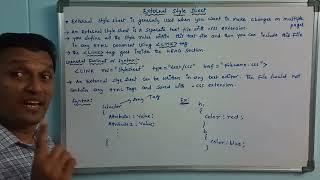 External Style Sheet
External style sheet is generally used when you want to make changes on multiple
pages
An External style sheet is a separate text file with .css extension.
you define all the style rules within this text file and then you can include this file
in any HTML document using <LINK> tag
The <LINK> tag goes inside the HEAD section.
General Format or Syntax:-
<LINK rel="stylesheet" type="text/css" href="filename.css">
An External style sheet can be written in any text editor. The file should not
contain any HTML tags and saved with .css extension.
Syntax: Selector Any Tag
{
Attribute1 : Value;
Attribute2 : Value;
}
Ex: h1
{
color : red;
}
{
color : blue;
}